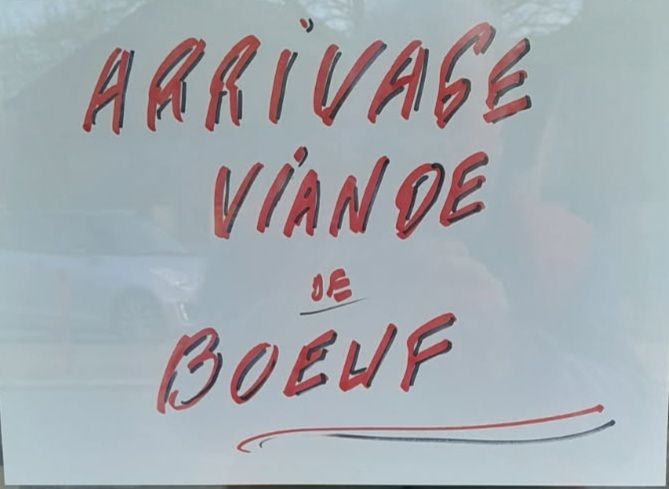 ARRIVAGE
VIANDE
DE
BOEUF